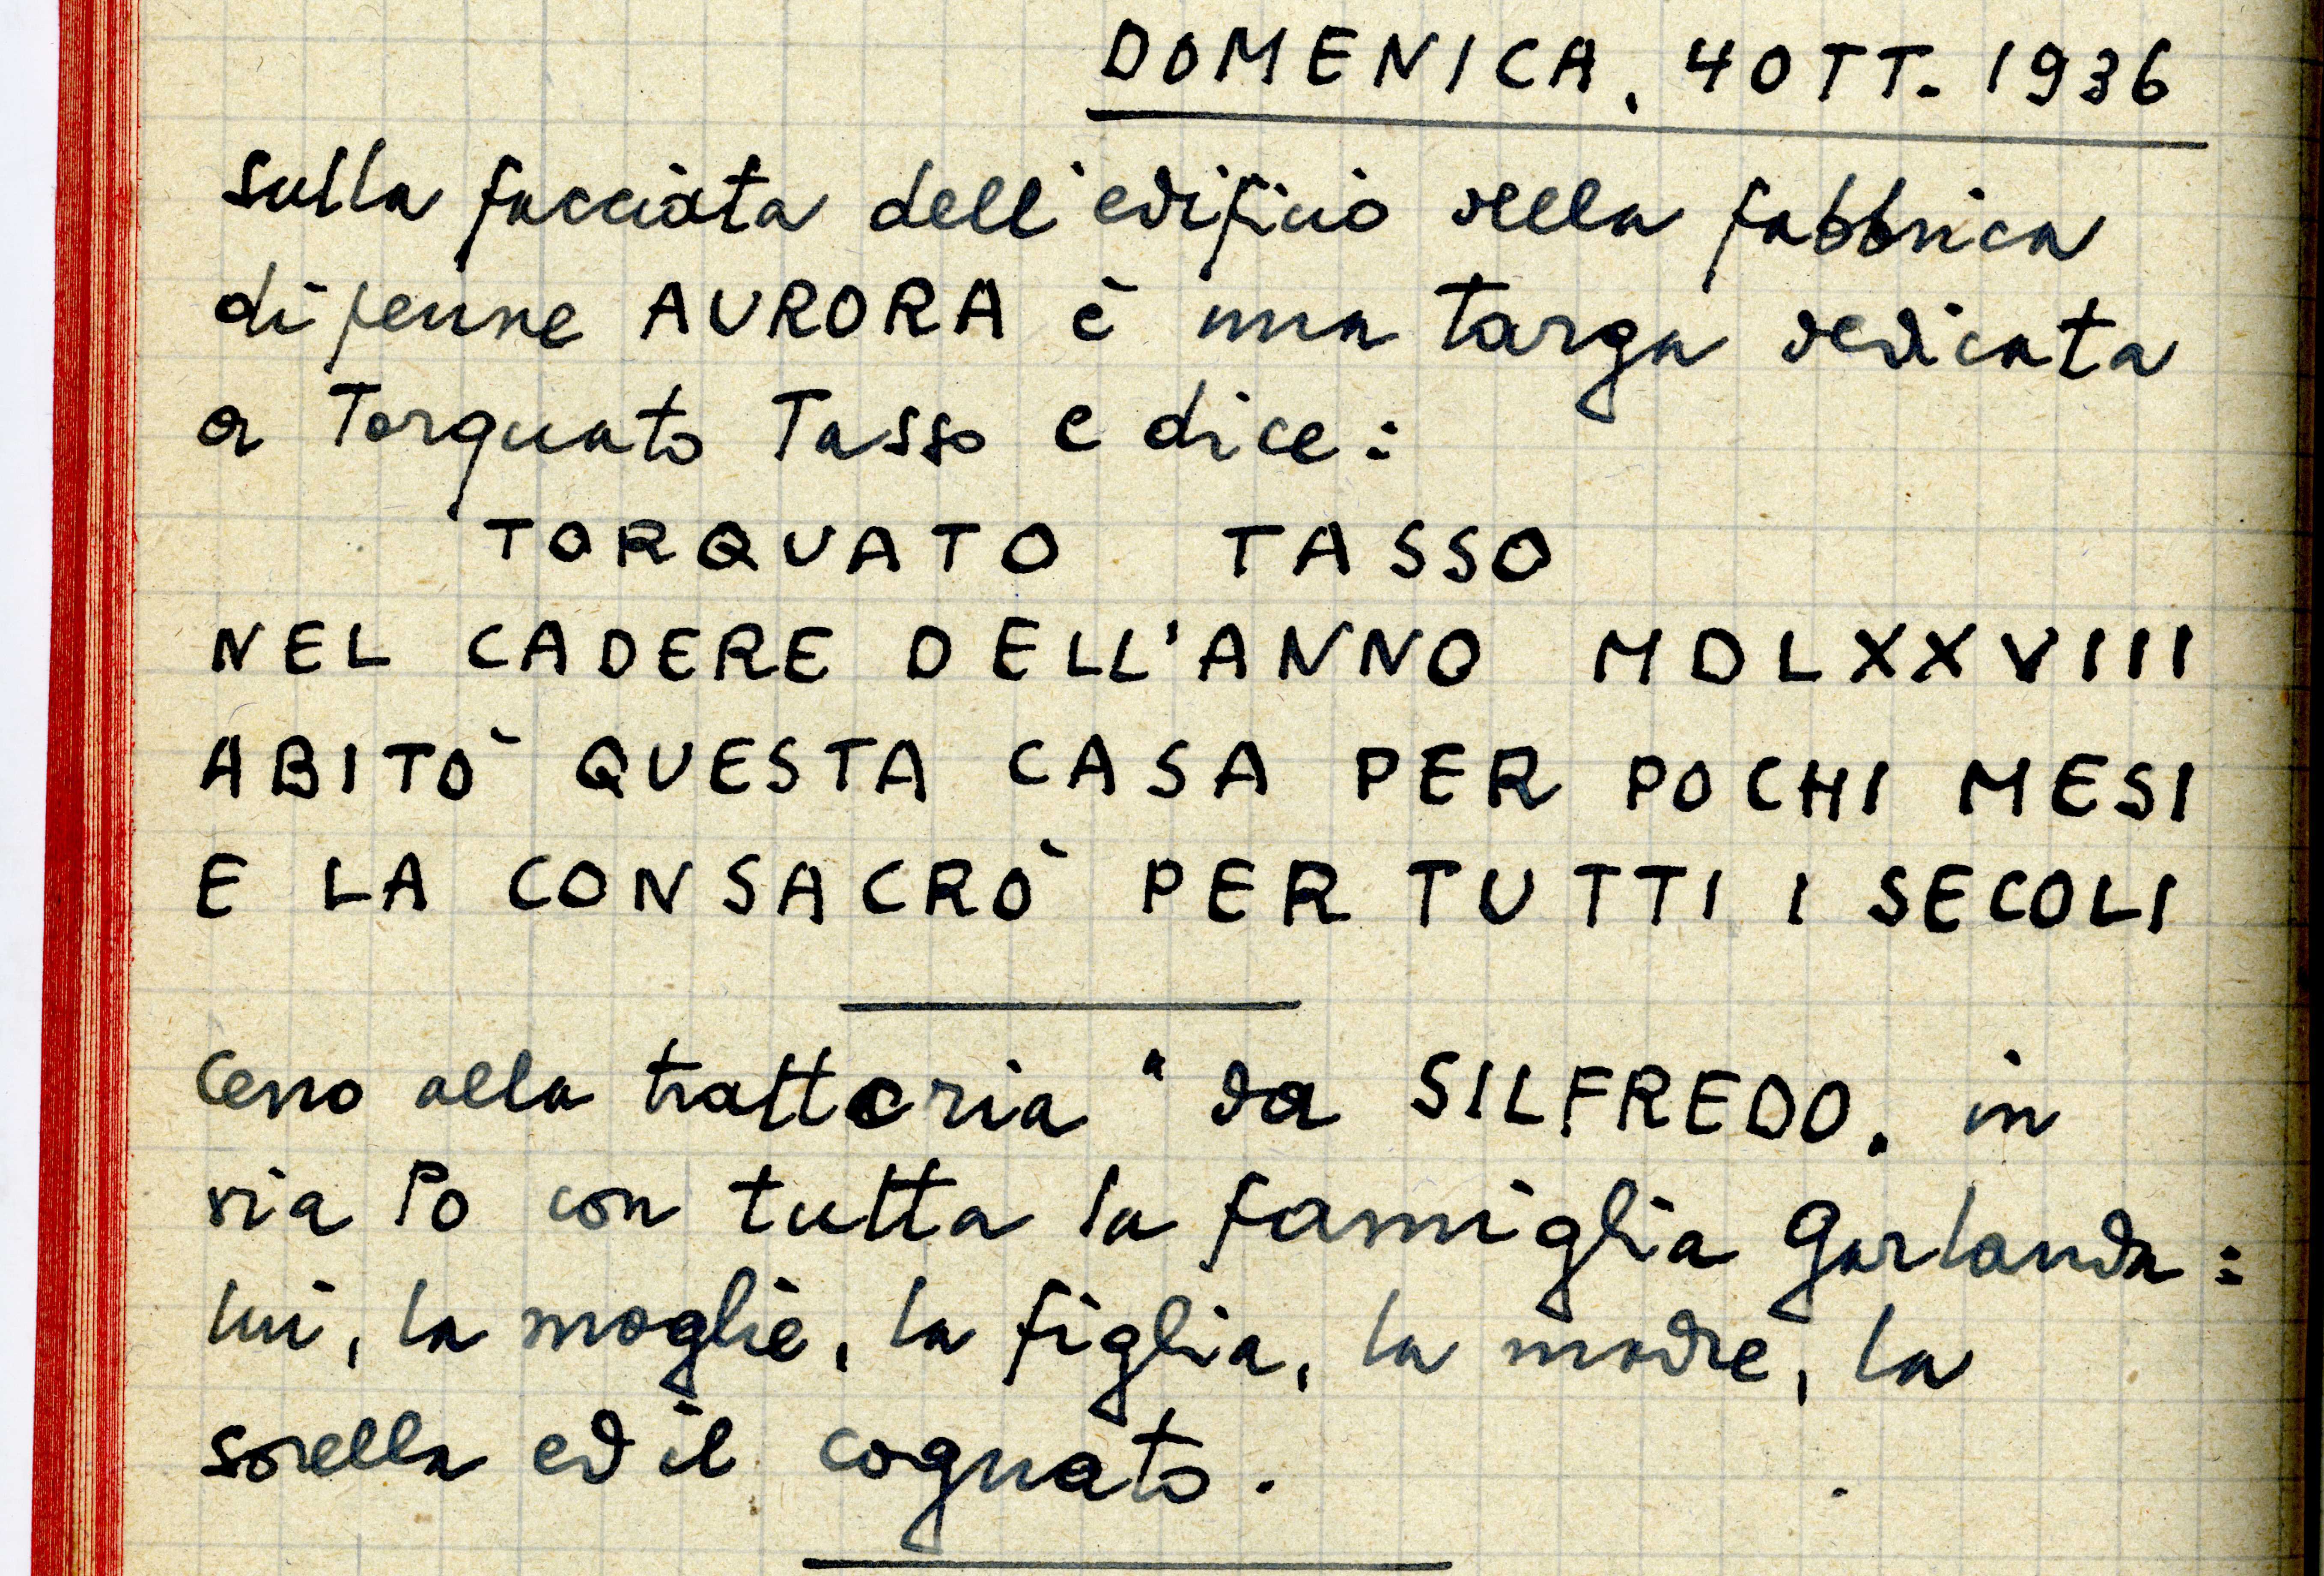 DOMENICA, 4 OTT. 1936
sulla facciata dell'edificio della fabbrica
di penne AURORA è una targa dedicata
a Torquato Tasso e dice:
TORQUATO TASSO
NEL CADERE DELL'ANNO MDLXXVIII
ABITÒ QUESTA CASA PER POCHI MESI
E LA CONSACRÒ PER TUTTI I SECOLI
Ceno alla trattoria "da SILFREDO„ in
via Po con tutta la famiglia Garlanda:
lui, la moglie, la figlia, la madre, la
sorella ed il cognato.